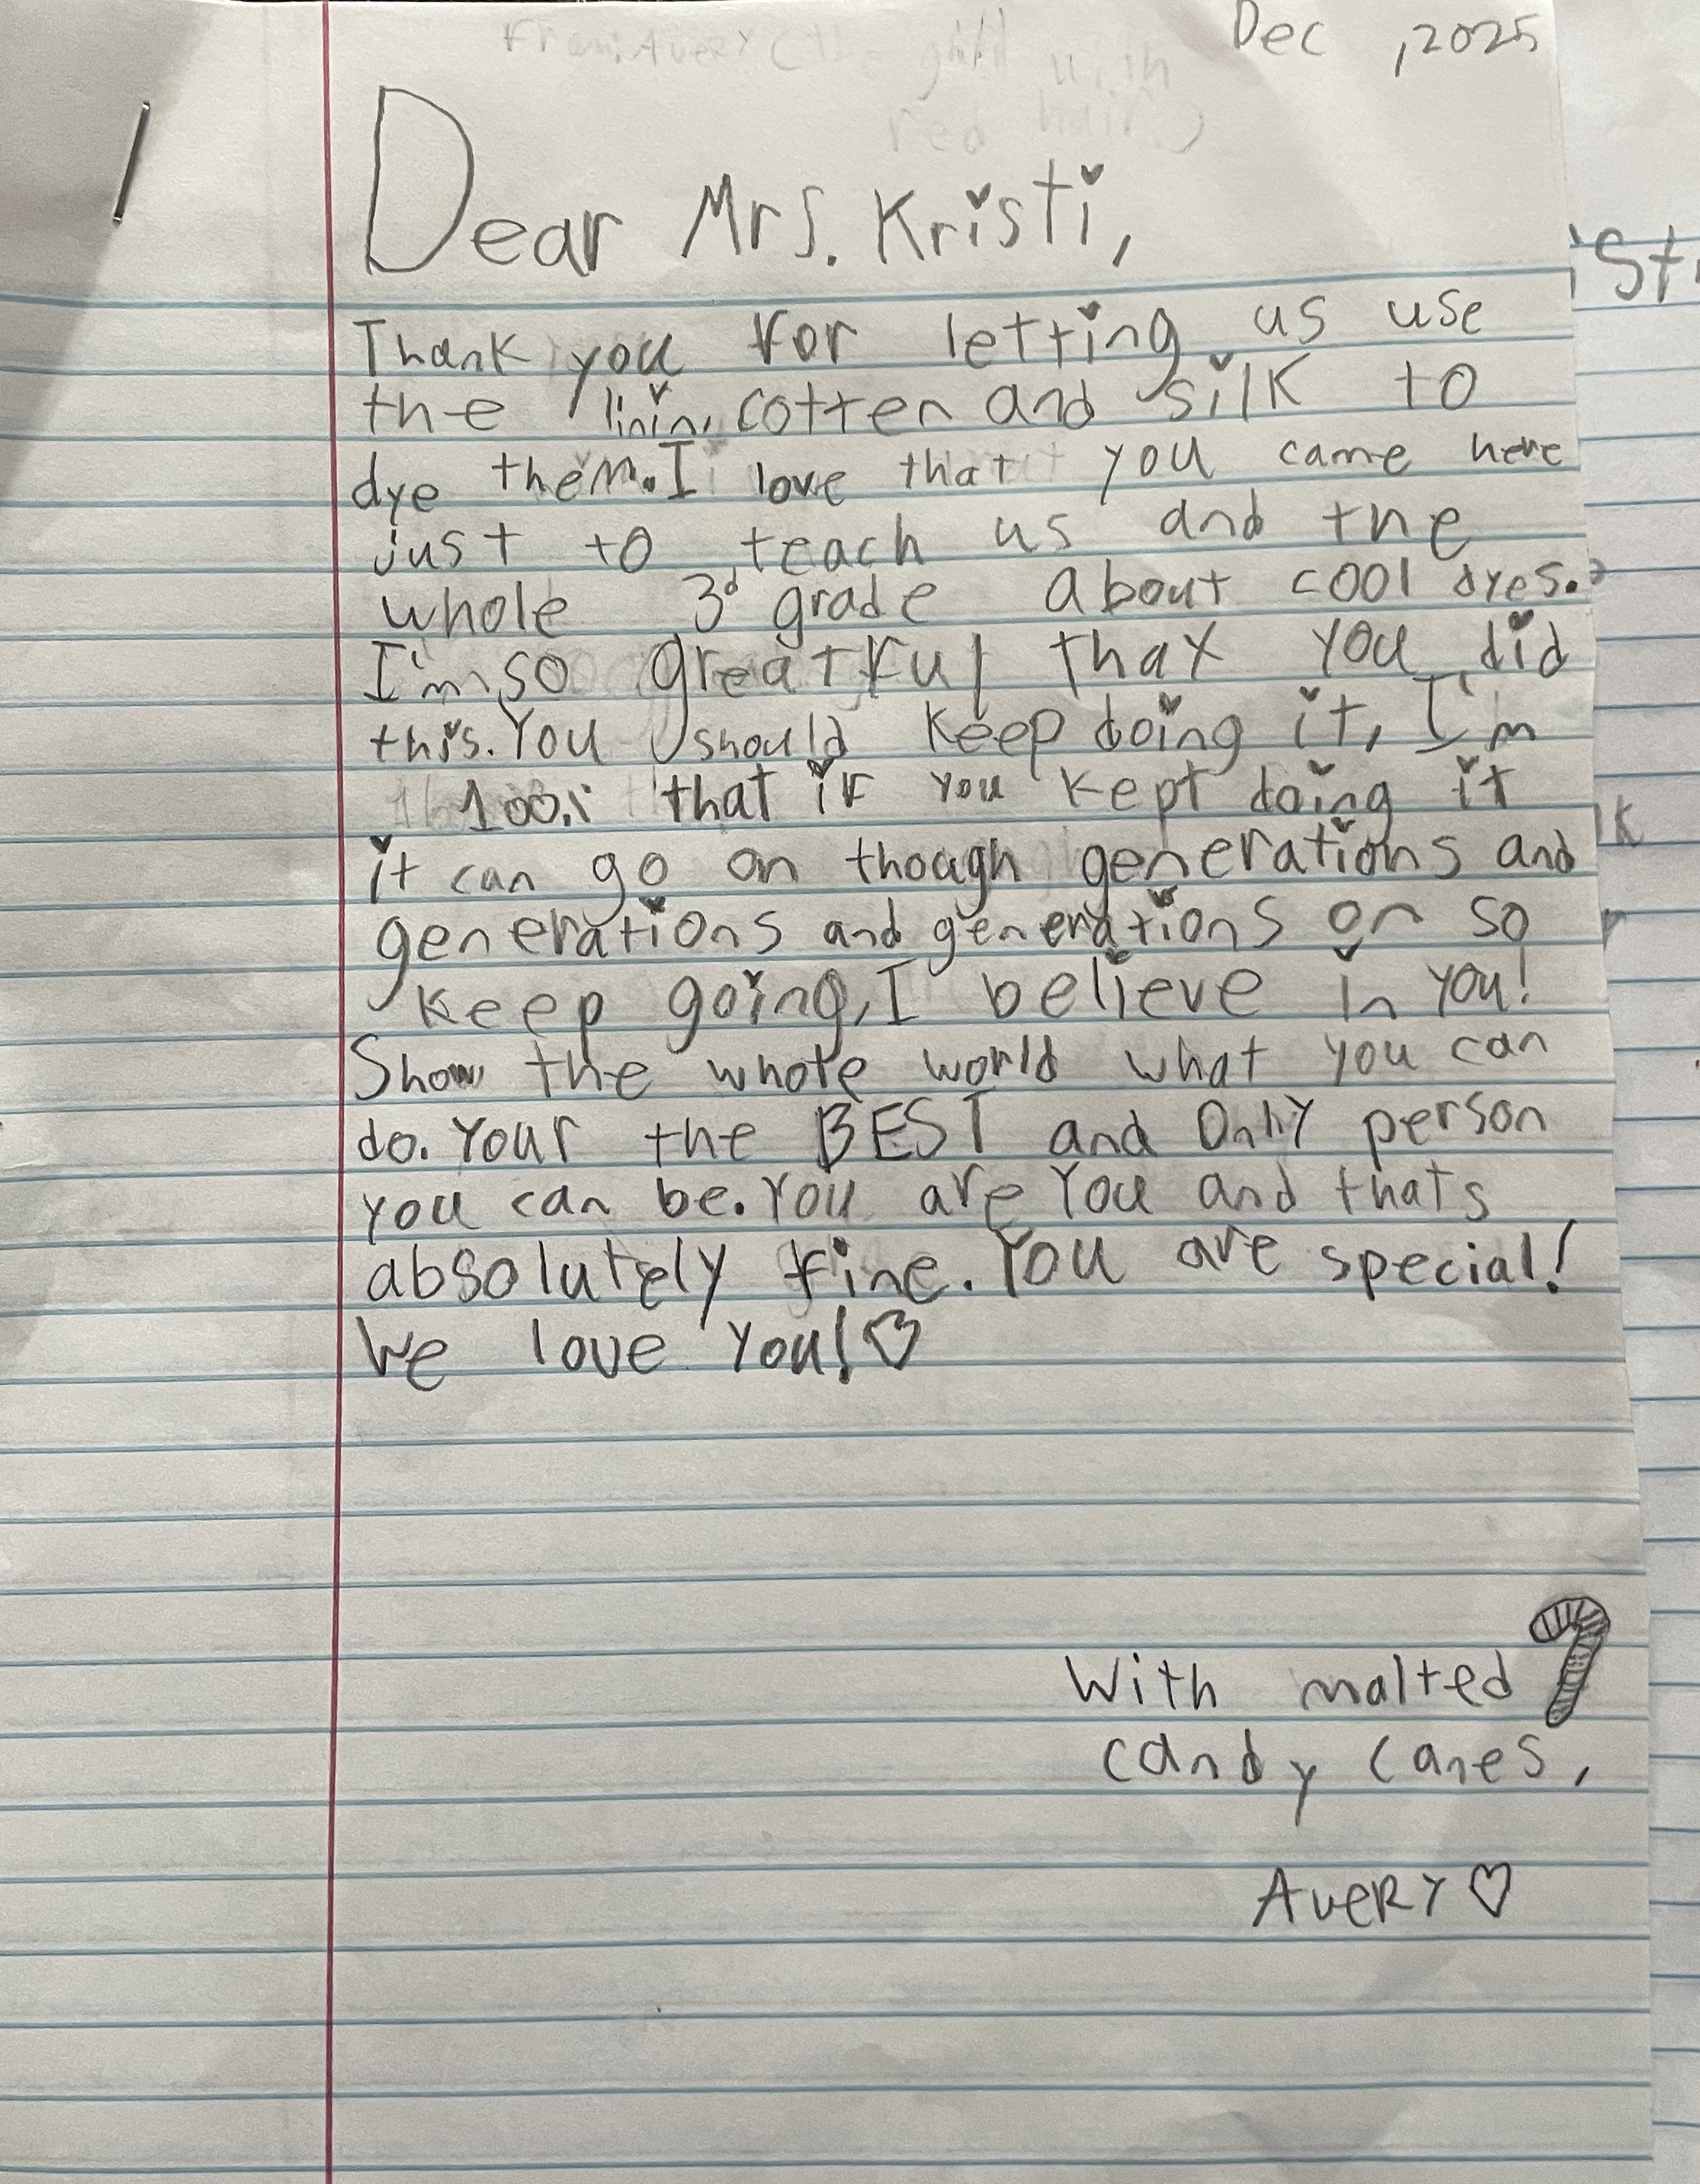 Dec ,2025
From: Avery (the girl with
red hair)
Dear Mrs. Kristi,
Thank you for letting us use
the linin, cotten and silk to
dye them. I love that you came here
just to teach us and the
whole 3d grade about cool dyes.
I'm so greatful that you did
this. You should keep doing it, I'm
100% that if you kept doing it
it can go on though generations and
generations and generations on so
keep going, I believe in you!
Show the whole world what you can
do. Your the BEST and Only person
you can be. You are You and thats
absolutely fine. You are special!
We love you!♡
With malted
candy canes,
Avery ♡